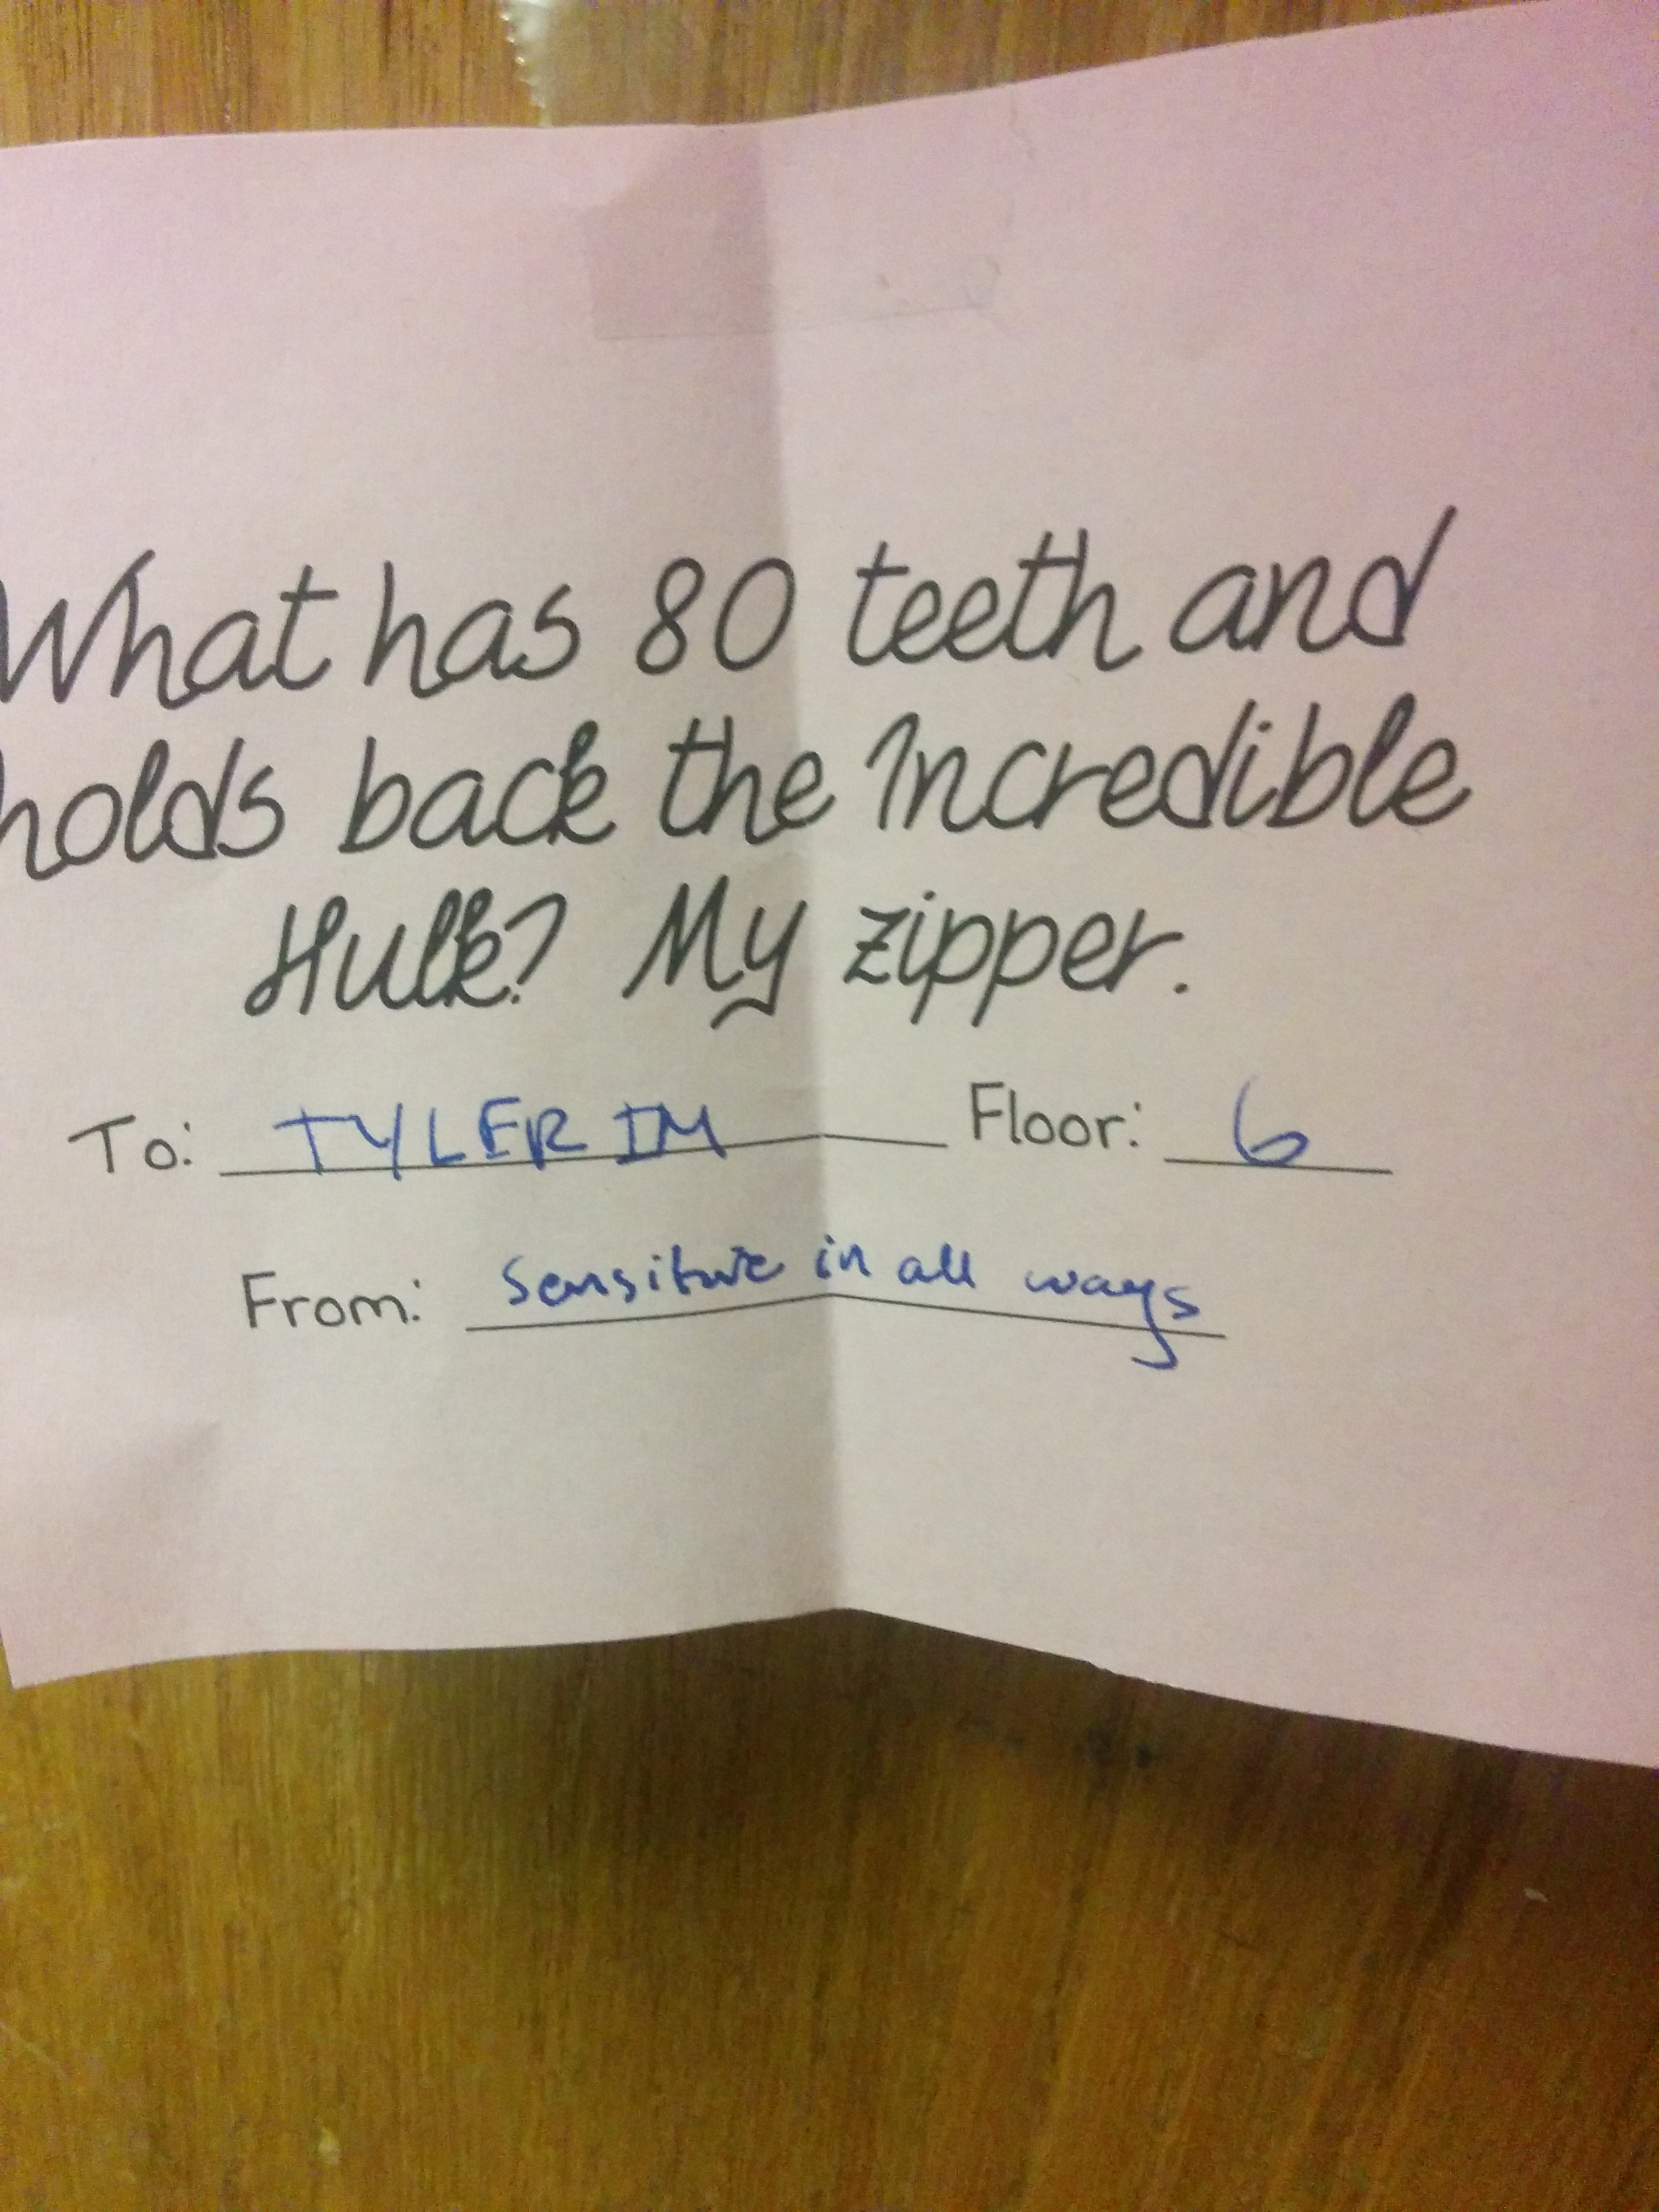 What has 80 teeth and
holds back the Incredible
Hulk? My zipper.
To: TYLER IM Floor: 6
From: Sensitive in all ways